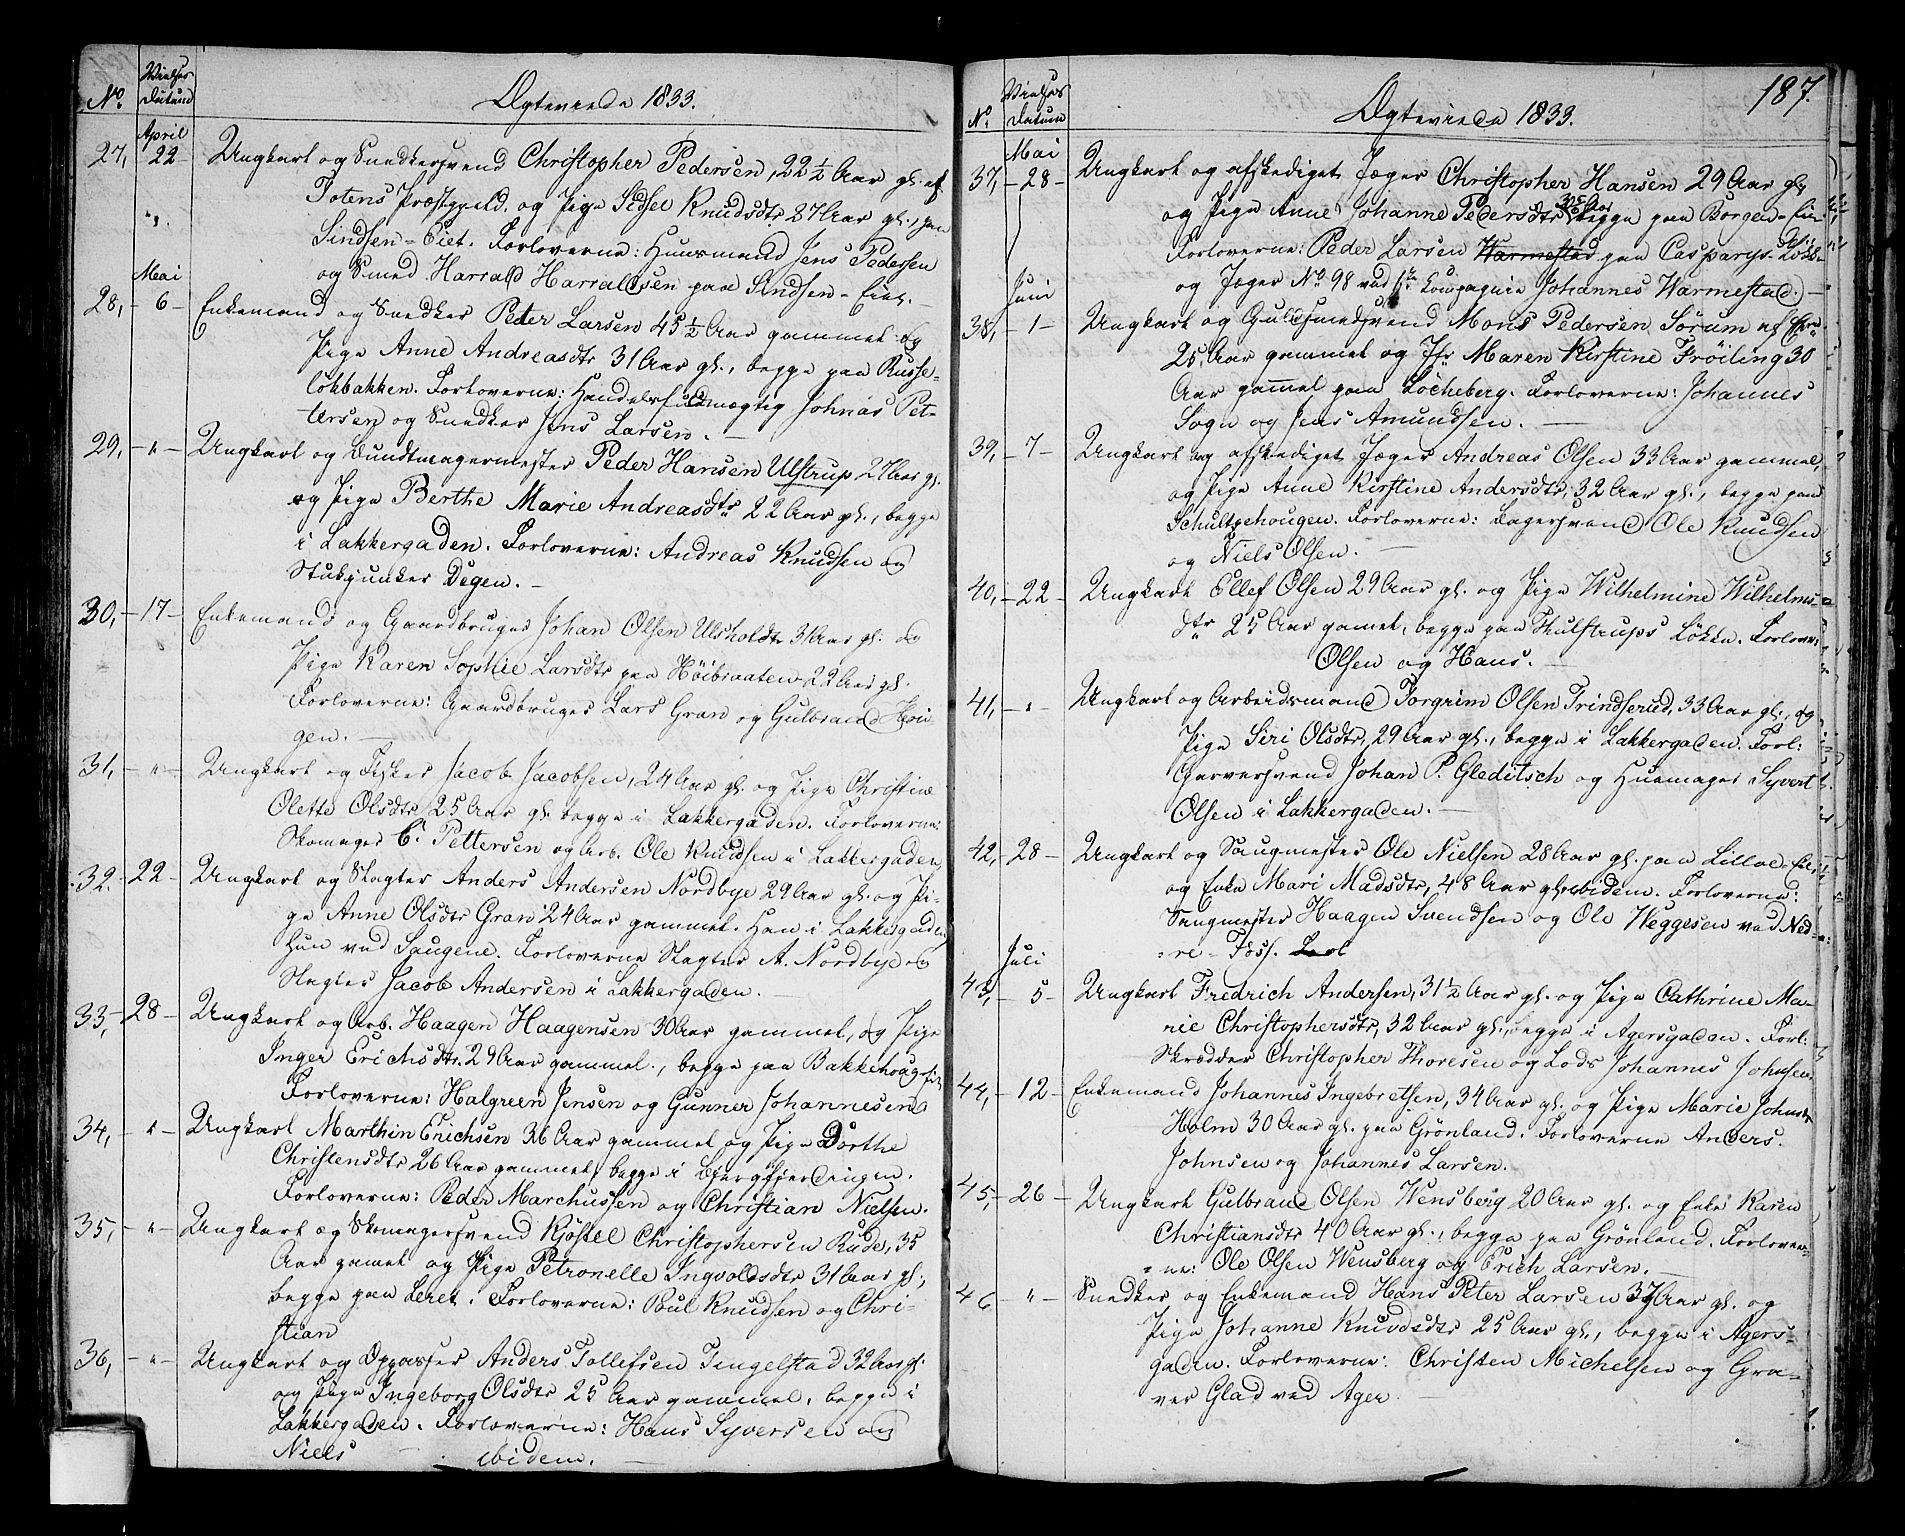 No.
Vielses
Datum
Ægteviede 1833.
April
27, 22 Ungkarl og Snedkersvend Christopher Pedersen, 22 1/2 Aar gl. af
Totens Præstegjeld. og Pige Sidsel Knudsdtr 27 Aar gl., paa
Sindsen-Eiet. Forloverne: Huusmand Jens Pedersen
og Smed Harrald Harraldsen paa Sindsen-Eiet.
Mai
28, 6 Enkemand og Snedker Peter Larsen 45 1/2 Aar gammel og
Pige Anne Andreasdtr 31 Aar gl., begge paa Russe-
løkbakken. Forloverne: Handelsfuldmægtig Johnas Pet-
tersen og Snedker Jens Larsen. —
29, " Ungkarl og Bundtmagermester Peder Hansen Ulstrup 27 Aar gl.
og Pige Berthe Marie Andreasdtr 22 Aar gl., begge
i Lakkergaden. Forloverne: Andreas Knudsen og
Stubjunker Degen. —
30, 17 Enkemand og Gaardbruger Johan Olsen Ulsholdt 31 Aar gl. og
Pige Karen Sophie Larsdtr paa Høibraaten 22 Aar gl.
Forloverne: Gaardbruger Lars Gran og Gulbrand
gen. —
31, " Ungkarl og Fisker Jacob Jacobsen, 24 Aar gl. og Pige Christine
Olette Olsdtr 25 Aar gl. begge i Lakkergaden. Forloverne:
Skomager C. Pettersen og Arb. Ole Knudsen i Lakkergaden,
32. 22 Ungkarl og Slagter Anders Andersen Nordbye 29 Aar gl. og Pi-
ge Anne Olsdtr Gran 24 Aar gammel. Han i Lakkergaden
Hun ved Saugene. Forloverne Slagter A. Nordbye og
Slagter Jacob Andersen i Lakkergaden. —
33, 28 Ungkarl og Arb. Haagen Haagensen 30 Aar gammel, og Pige
Inger Erichsdtr 29 Aar gammel, begge paa Bakkehoug-
Forloverne: Halgreen Jensen og Gunner Johannesen
34, " Ungkarl Marthin Erichsen 36 Aar gammel og Pige Dorthe
Christensdtr 26 Aar gammel, begge i Bjergfjerdingen.
Forloverne: Peder Marchussen og Christian Nielsen.
35, " Ungkarl og Skomagersvend Kjøstel Christophersen Rude, 35
Aar gamel og Pige Petronelle Ingvoldsdtr 31 Aar gl.,
begge paa Leret. Forloverne: Poul Knudsen og Chri-
stian
36, " Ungkarl og Oppasser Anders Tollefsen Tingelstad 32 Aar gl.
og Pige Ingeborg Olsdtr 25 Aar gammel, begge i
Lakkergaden. Forloverne: Hans Syversen og
Niels — ibidem. —
187.
No.
Vielses
Datum
Ægteviede 1833.
Mai
37, 28 Ungkarl og afskediget Jæger Christopher Hansen 29 Aar gl
og Pige Anne Johanne Pedersdtr begge paa Borgen-Eie
Forloverne: Peder Larsen Warmestad paa Casparys
og Jæger No 98 ved 1te Compagnie Johannes Warmestad. —
Juni
38, 1 Ungkarl og Guldsmedsvend Mons Pedersen Sørum af
25 Aar gammel og Jfr Maren Kirstine Frøiling 30
Aar gamel paa Løcheberg. Forloverne: Johannes
Sogn og Jens Amundsen. —
39, 7 Ungkarl og afskediget Jæger Andreas Olsen 33 Aar gammel,
og Pige Anne Kirstine Andersdtr, 32 Aar gl., begge paa
Schultzehougen. Forloverne: Bagersvend Ole Knudsen
og Niels Olsen. —
40, 22 Ungkarl Ellef Olsen 29 Aar gl. og Pige Wilhelmine Wilhelms-
dtr 25 Aar gamel, begge paa Thulstrups Løkke. Forlover:
Olsen og Hans. —
41, " Ungkarl og Arbeidsmand Torgrim Olsen Trindserud, 33 Aar gl., og
Pige Siri Olsdtr, 29 Aar gl., begge i Lakkergaden. Forl:
Garversvend Johan P. Gleditsch og Huemager Syvert
Olsen i Lakkergaden. —
42, 28 Ungkarl og Saugmester Ole Nielsen 28 Aar gl. paa Lilloe-Eie,
og Enke Mari Madsdtr, 48 Aar gl. ibidem. Forloverne:
Saugmester Haagen Svendsen og Ole Weggesen ved Ned-
re-Foss.
Juli
43, 5 Ungkarl Fredrich Andersen, 31 1/2 Aar gl. og Pige Cathrine Ma-
rie Christophersdtr, 32 Aar gl., begge i Agersgaden. Forl:
Skrædder Christopher Thoresen og Lods Johannes Johnsen.
44, 12 Enkemand Johannes Ingebretsen, 34 Aar gl. og Pige Marie Johnsdtr
Holm 30 Aar gl. paa Grønland. Forloverne Anders
Johnsen og Johannes Larsen.
45, 26 Ungkarl Gulbrand Olsen Wensberg 20 Aar gl. og Enke Karen
Christiansdtr 40 Aar gl., begge paa Grønland. Forlover-
ne: Ole Olsen Wensberg og Erich Larsen. —
46 " Snedker og Enkemand Hans Peter Larsen 37 Aar gl. og
Pige Johanne Knudsdtr 25 Aar gl., begge i Agers-
gaden. Forloverne: Christen Michelsen og Gra-
ver Glad ved Ager.